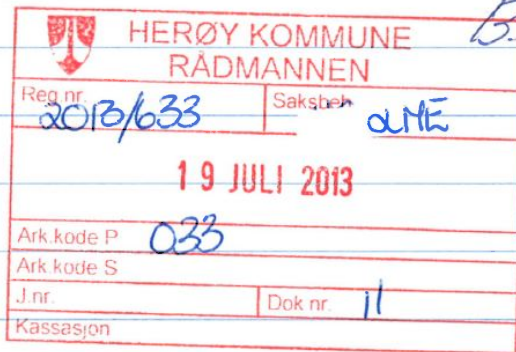 HERØY KOMMUNE
RÅDMANNEN
Reg.nr. 2013/633 Saksbeh. OLME
19 JULI 2013
Ark.kode P 033
Ark.kode S
J.nr. Dok nr. 11
Kassasjon